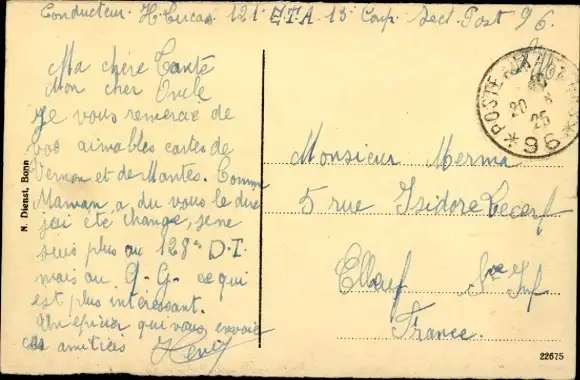 Conducteur H. Lucas 121e E.T.A 15 Comp. Sect. Post 96.
Ma chère Tante
Mon cher Oncle
Je vous remercie de
vos aimables cartes de
Vernon et de Mantes. Comme
Maman a du vous le dire
j'ai été change, je ne
suis plus au 128e D.I.
mais au Q-G- ce qui
est plus intéressant.
Un épicier qui vous envoie
ses amitiés Henri
N. Dienst, Bonn
POSTE AUX
20 3 25
* 96 *
Monsieur Merma
5 rue Isidore Lecerf
Elbeuf Sne Inf
France.
22675